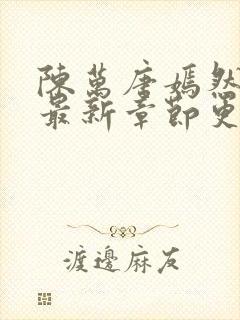 陳萬唐嫣然
最新章節更
渡邊麻友